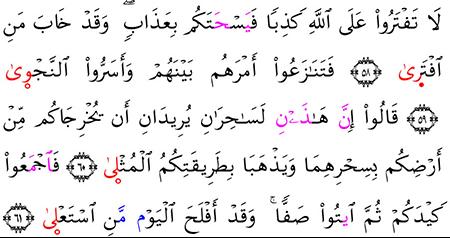 لَا تَفْتَرُوا۟ عَلَى ٱللَّهِ كَذِبًا فَيَسْحَتَكُم بِعَذَابٍۖ وَقَدْ خَابَ مَنِ
ٱفْتَرىٰ ﴿٥٨﴾ فَتَنَـٰزَعُوٓا۟ أَمْرَهُم بَيْنَهُمْ وَأَسَرُّوا۟ ٱلنَّجْوىٰ
﴿٥٩﴾ قَالُوٓا۟ إِنَّ هَـٰذَيْنِ لَسَـٰحِرَٰنِ يُرِيدَانِ أَن يُخْرِجَاكُم مِّنْ
أَرْضِكُم بِسِحْرِهِمَا وَيَذْهَبَا بِطَرِيقَتِكُمُ ٱلْمُثْلىٰ ﴿٦٠﴾ فَٱجْمَعُوا۟
كَيْدَكُمْ ثُمَّ ٱيتُوا۟ صَفًّاۚ وَقَدْ أَفْلَحَ ٱلْيَوْم مَّنِ ٱسْتَعْلىٰ ﴿٦١﴾